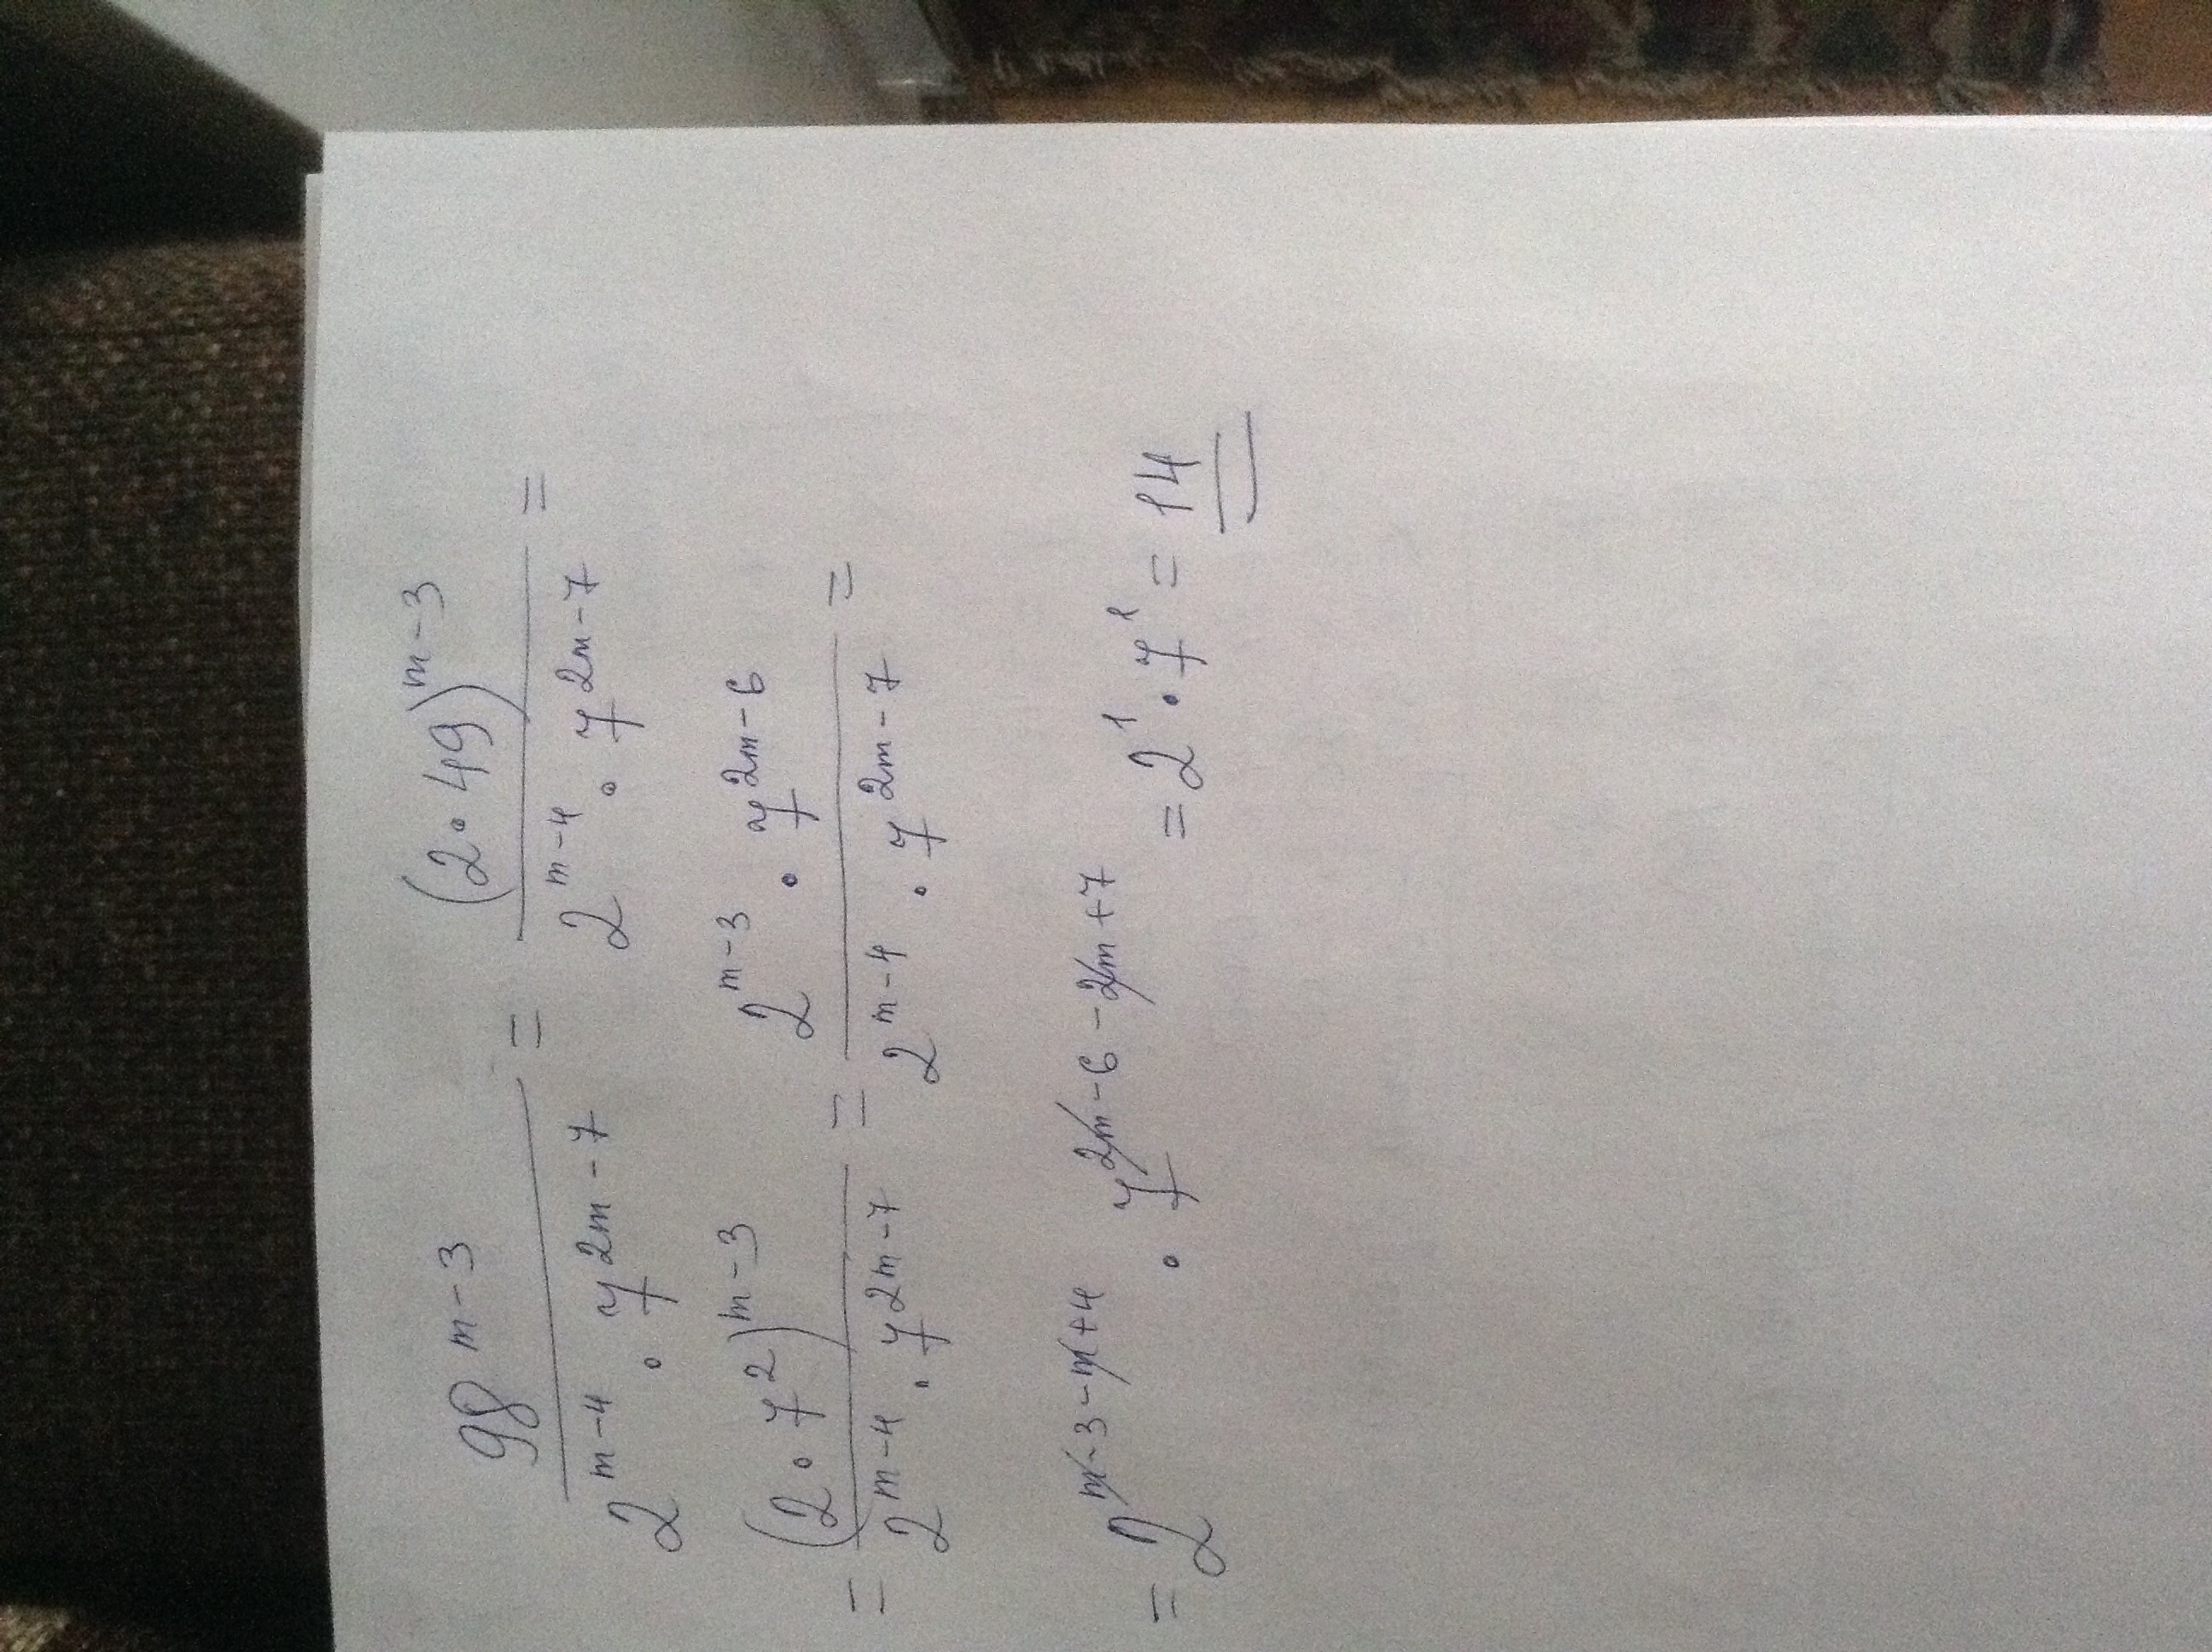 98^(m-3) / (2^(m-4) · 7^(2m-7)) = (2·49)^(m-3) / (2^(m-4) · 7^(2m-7)) =
= (2·7^2)^(m-3) / (2^(m-4) · 7^(2m-7)) = 2^(m-3) · 7^(2m-6) / (2^(m-4) · 7^(2m-7)) =
= 2^(m-3-m+4) · 7^(2m-6-2m+7) = 2^1 · 7^1 = 14